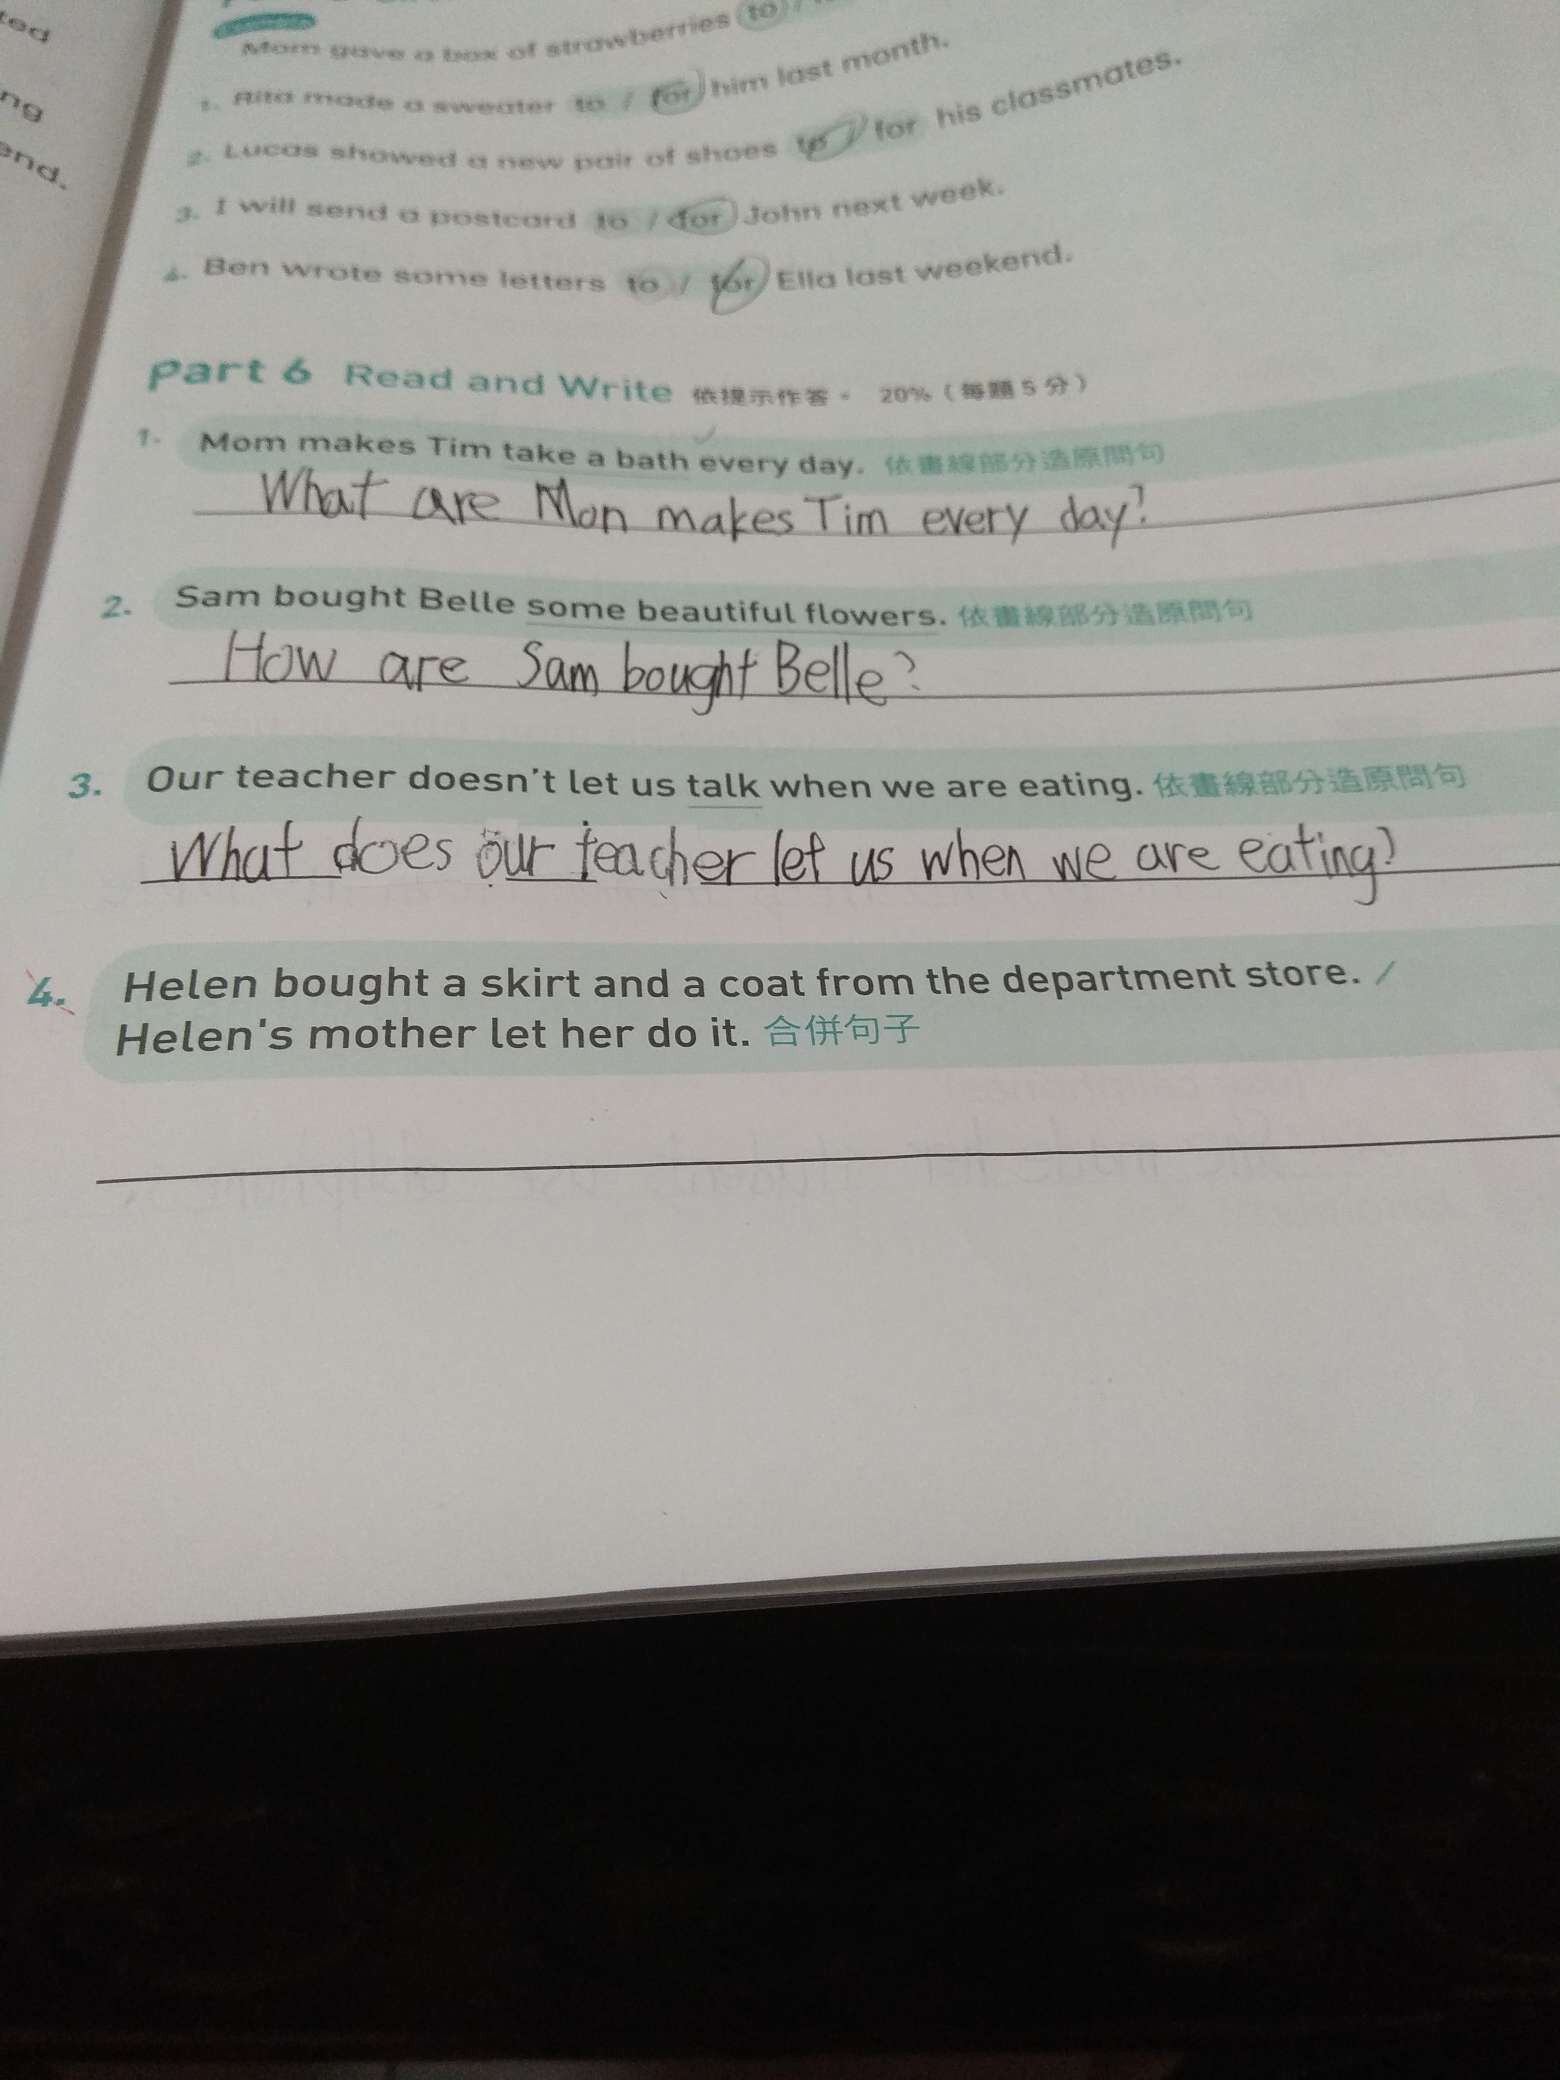 ted
ng
end.
Mom gave a box of strawberries to /
1. Rita made a sweater to / for him last month.
2. Lucas showed a new pair of shoes to / for his classmates.
3. I will send a postcard to / for John next week.
4. Ben wrote some letters to / for Ella last weekend.
Part 6 Read and Write 依提示作答。 20%（每題5分）
1. Mom makes Tim take a bath every day. 依畫線部分造原問句
What are Mon makes Tim every day?
2. Sam bought Belle some beautiful flowers. 依畫線部分造原問句
How are Sam bought Belle?
3. Our teacher doesn't let us talk when we are eating. 依畫線部分造原問句
What does our teacher let us when we are eating?
4. Helen bought a skirt and a coat from the department store. /
Helen's mother let her do it. 合併句子